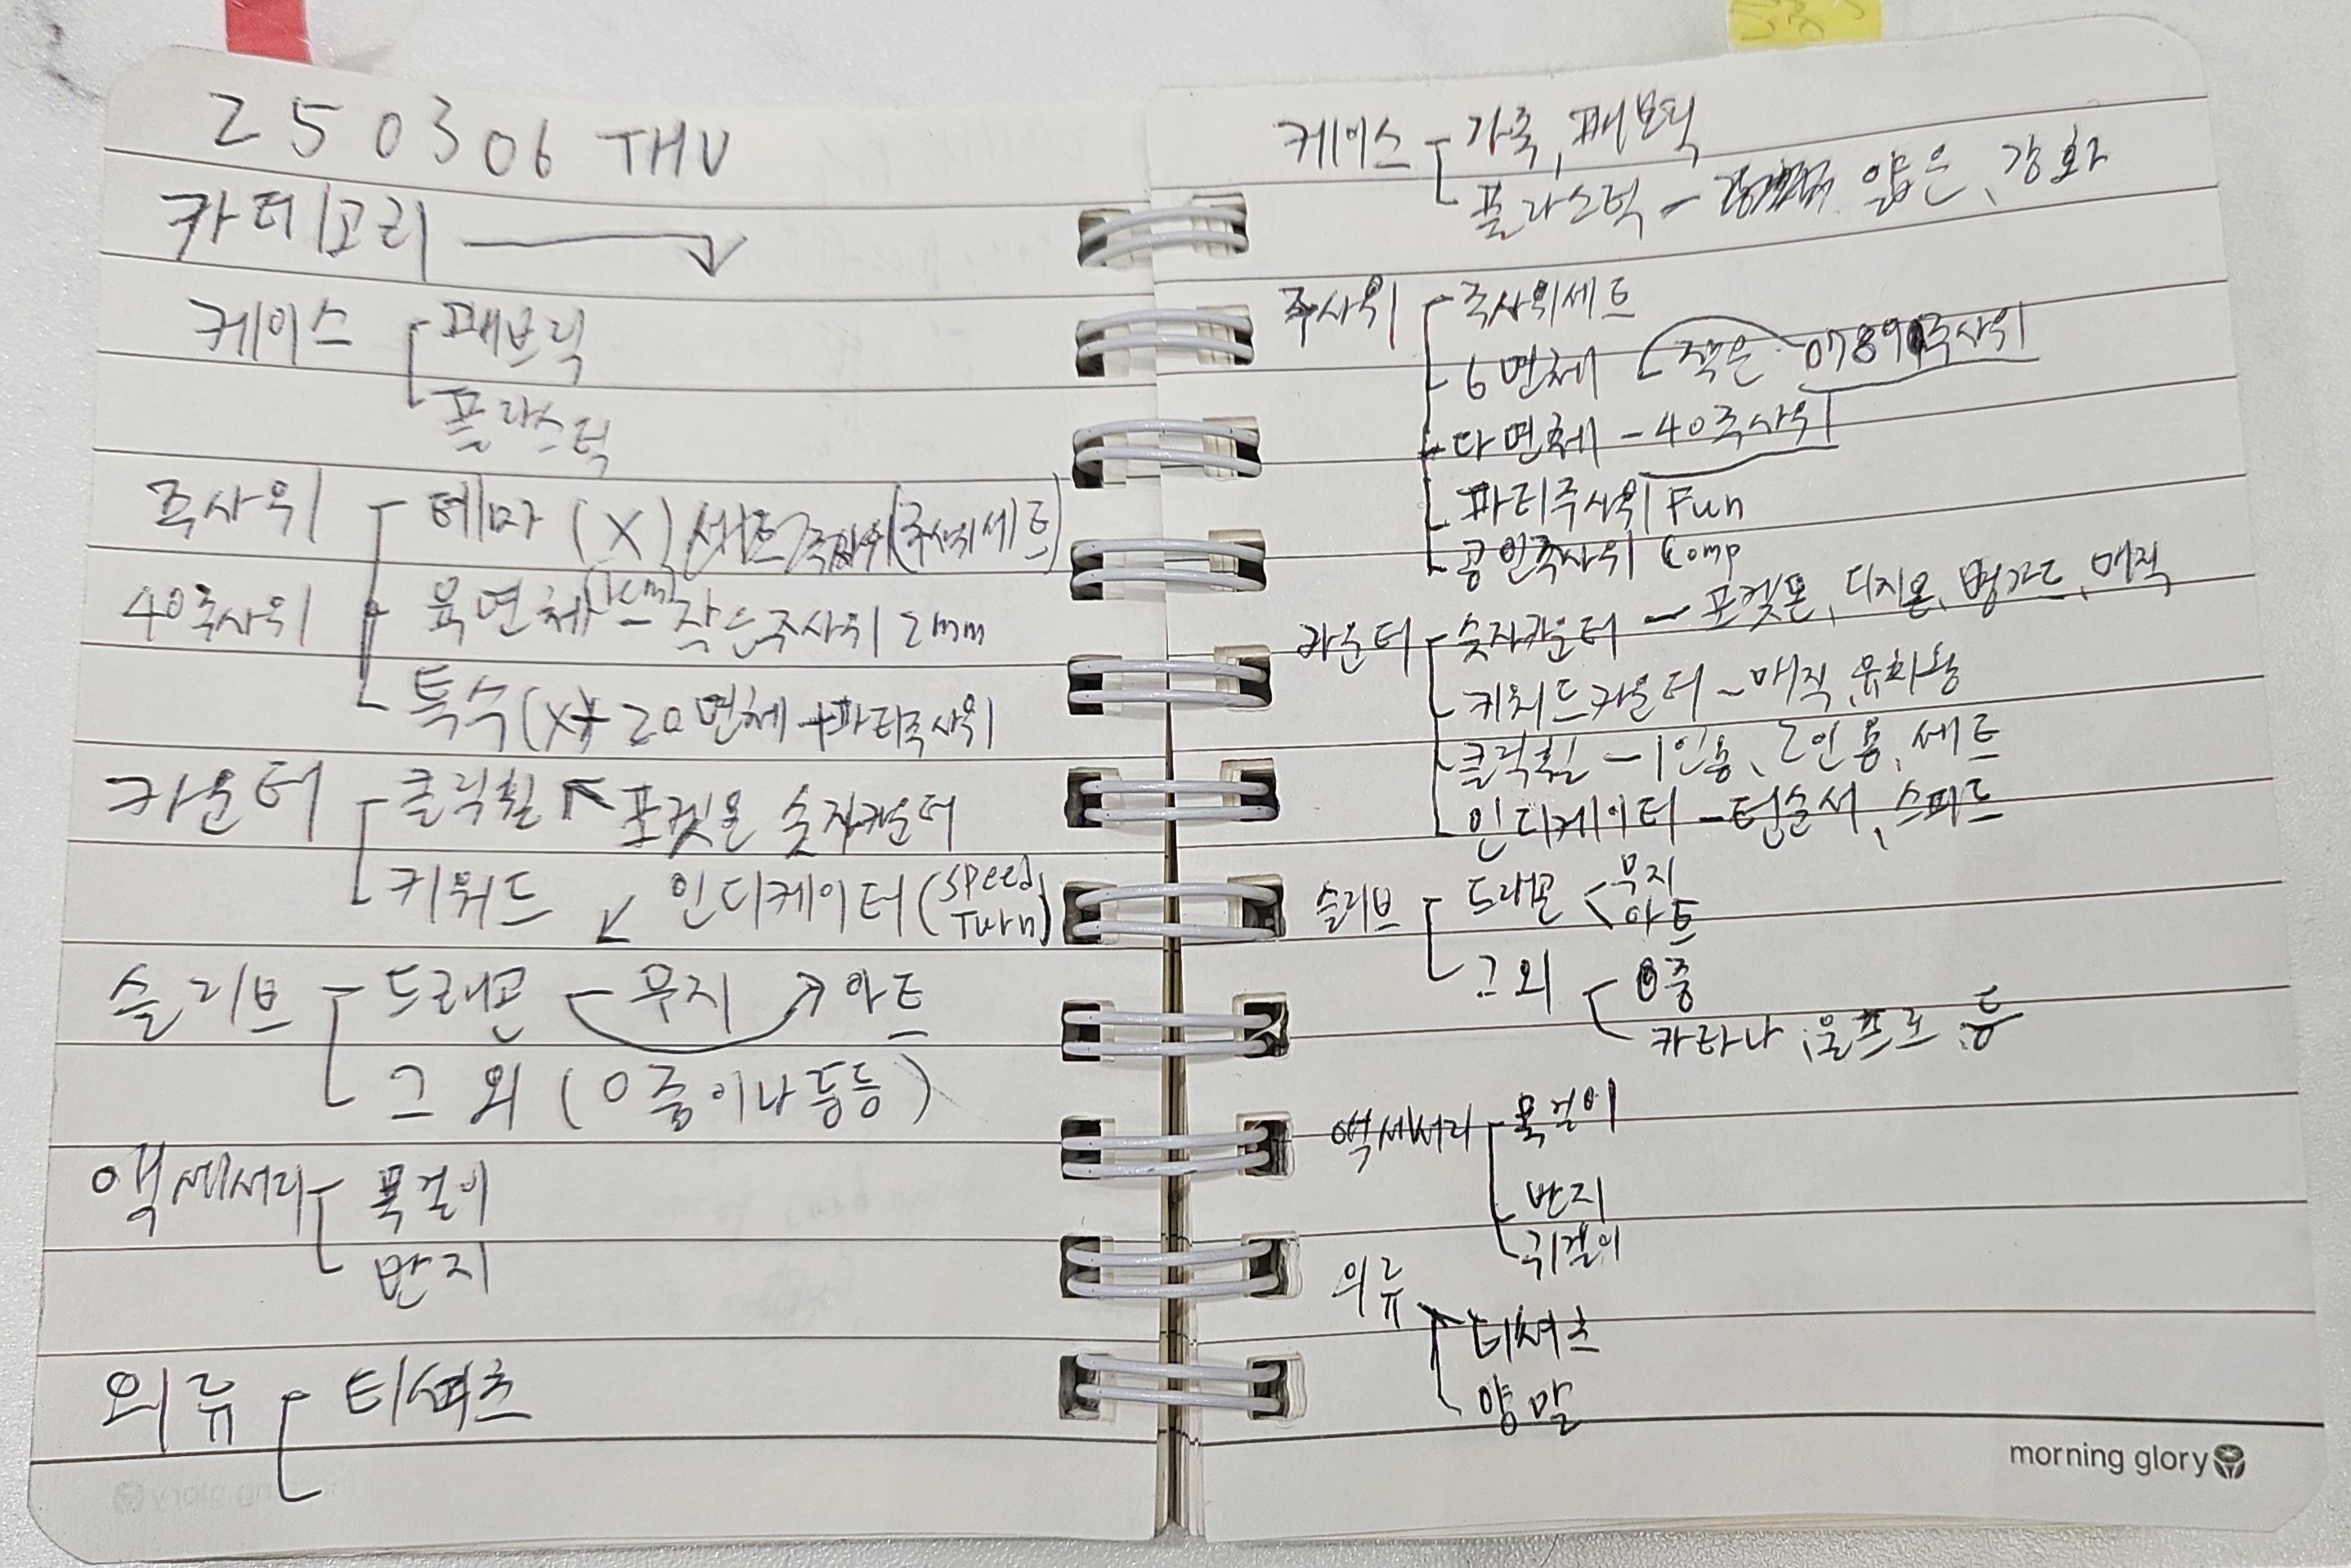 250306 THU
카테고리
케이스 패브릭
플라스틱
주사위 테마 (X) 세트주사위(주사위세트)
40주사위 육면체(1cm) - 작은주사위 2mm
특수(X) 20면체 + 파티주사위
카운터 클릭휠 포켓몬 숫자카운터
키워드 인디케이터 (speed
Turn)
슬리브 드래곤 - 무지 아트
그 외 (0중이나 등등)
액세서리 목걸이
반지
의류 티셔츠
케이스 가죽, 패브릭
플라스틱 - 얇은, 강화
주사위 주사위세트
6면체 작은 0789주사위
다면체 - 40주사위
파티주사위 Fun
공인주사위 Comp
카운터 숫자카운터 - 포켓몬, 디지몬, 뱅가드, 매직
키워드카운터 - 매직
클릭휠 - 1인용, 2인용, 세트
인디케이터 - 턴순서, 스피드
슬리브 드래곤 무지
아트
그 외 0중
카타나, 울프로 등
액세서리 목걸이
반지
귀걸이
의류
티셔츠
양말
morning glory